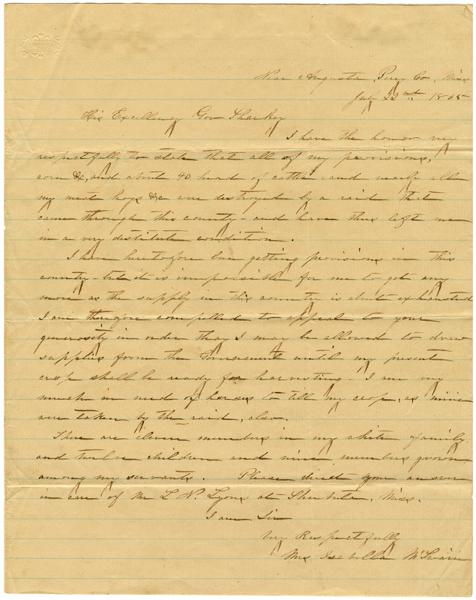 Near Augusta, Perry Co, Miss
July 22nd 1865
His Excellency Gov Sharkey
I have the honor very
respectfully to state that all of my provisions,
corn &c, and about 40 head of cattle and nearly all
my meat hogs &c were destroyed by a raid that
came through this county - and have thus left me
in a very destitute condition.
I have heretofore been getting provisions in this
county - but it is impossible for me to get any
more as the supply in this country is about exhausted
I am therefore compelled to appeal to your
generosity in order that I may be allowed to draw
supplies from the Government until my present
crop shall be ready for harvesting. I am very
much in need of horses to till my crop, as mine
were taken by the raid, also.
There are eleven members in my white family
and twelve children and nine members grown
among my servants. Please direct your answer
in care of Mr L N. Lyons at Shubuta, Miss.
I am Sir
Very Respectfully
Mrs Isabella